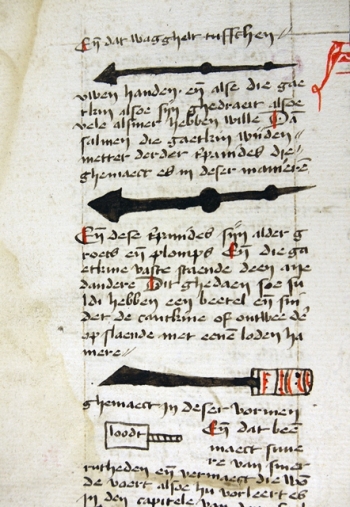 En̄ dat waghelt tusschen
vwen handen· en̄ alse die gae
tkin alsoe sijn ghedraeit alsoe
vele alsmer hebben wille Dā
salmen die gaetkin winden
metter derder spaindes die
ghemaect es in deser manierē
En̄ dese spaindes sijn alder g
roets en̄ plomps En̄ die ga
etkine vaste staende deen an̄e
dandere Dit ghedaen soe su
ldi hebben een beetel en̄ sni
det de cantkine of ontwee de
op slaende met eenē loden ha
mere
ghemaect in deser vormen
loodt
En̄ dat bee
maect sine
re van siner
en̄ vermaect die wō
de voort alsoe hu verleert es
in den capitele van